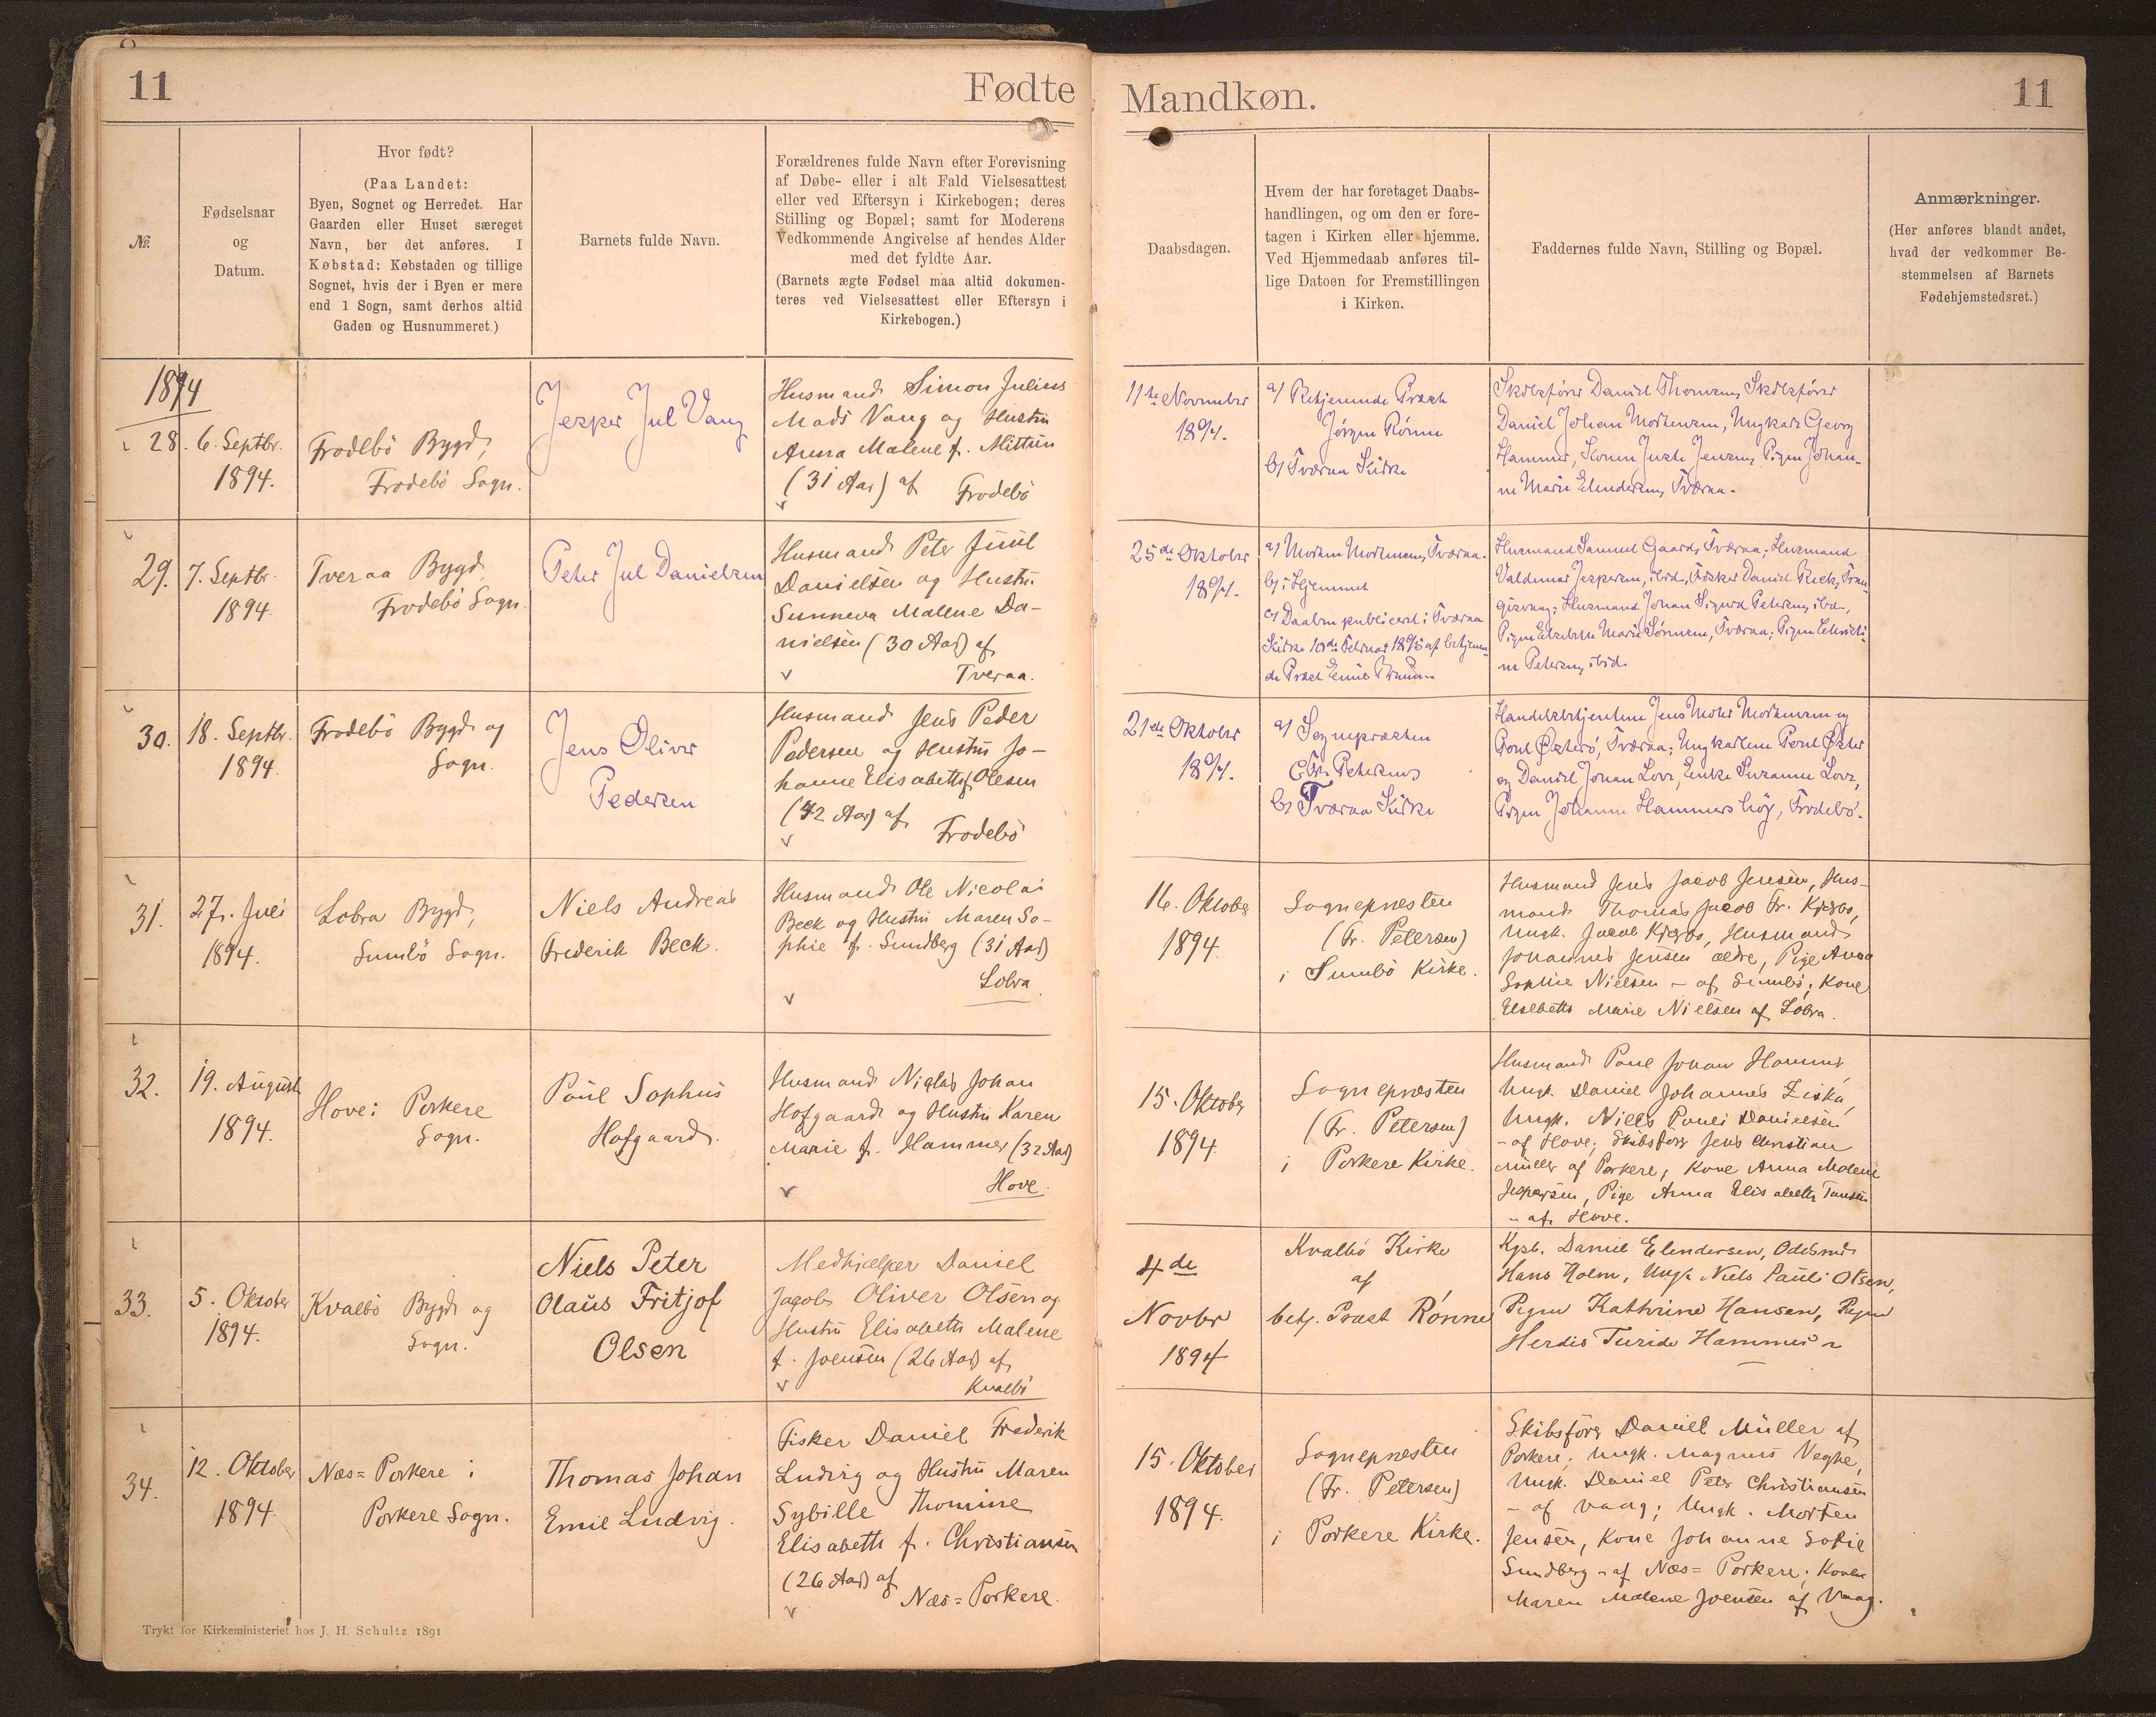 11
Fødte
Mandkøn.
11
№
Fødselsaar
og
Datum.
Hvor født?
(Paa Landet:
Byen, Sognet og Herredet. Har
Gaarden eller Huset særeget
Navn, bør det anføres. I
Købstad: Købstaden og tillige
Sognet, hvis der i Byen er mere
end 1 Sogn, samt derhos altid
Gaden og Husnummeret)
Barnets fulde Navn.
Forældrenes fulde Navn efter Forevisning
af Døbe- eller i alt Fald Vielsesattest
eller ved Eftersyn i Kirkebogen; deres
Stilling og Bopæl; samt for Moderens
Vedkommende Angivelse af hendes Alder
med det fyldte Aar.
(Barnets ægte Fødsel maa altid dokumen-
teres ved Vielsesattest eller Eftersyn i
Kirkebogen.)
Daabsdagen.
Hvem der har foretaget Daabs-
handlingen, og om den er fore-
tagen i Kirken eller hjemme.
Ved Hjemmedaab anføres til-
lige Datoen for Fremstillingen
i Kirken.
Faddernes fulde Navn, Stilling og Bopæl.
Anmærkninger.
(Her anføres blandt andet,
hvad der vedkommer Be-
stemmelsen af Barnets
Fødehjemstedsret.)
1894
28.
6. Septbr.
1894.
Frodebö Bygd,
Frodebö Sogn.
Jesper Jul Vang
Husmand Simon Julius
Mads Vang og Hustru
Anna Malene f. Mittun
(31 Aar) af
Frodebö
11te November
1894.
a) Betjenende Præst
Jörgen Rönne
b) Tværaa Kirke
Skibsförer Daniel Thomsen, Skibsförer
Daniel Johan Mortensen, Ungkarl Georg
Hammer, Konen Juste Jensen, Pigen Johan-
ne Marie Elendersen, Tværaa.
29.
7. Septbr.
1894.
Tveraa Bygd,
Frodebö Sogn.
Peter Jul Danielsen
Husmand Peter Juul
Danielsen og Hustru
Sunneva Malene Da-
nielsen (30 Aar) af
Tveraa.
25de Oktober
1894.
a) Morten Mortensen, Tværaa.
b) i Hjemmet
c) Daaben publiceret i Tværaa
Kirke 10de Februar 1895 af betjenen-
de Præst
Husmand Samuel Gaard, Tværaa; Husmand
Valdemar Jespersen, ibid., Fisker Daniel
Husmand Johan Sigurd Petersen, ibd.,
Pigen Elsebeth Marie Sörensen, Tværaa; Pigen
ne Petersen, ibid.
30.
18. Septbr.
1894.
Frodebö Bygd og
Sogn.
Jens Oliver
Pedersen
Husmand Jens Peder
Pedersen og Hustru Jo-
hanne Elisabeth f. Olesen
(42 Aar) af
Frodebö
21de Oktober
1894.
a) Sognepræsten
Fr. Petersen
b) Tværaa Kirke
Handelsbetjentene Jens Mohr Mortensen og
Poul Österö, Tværaa; Ungkarlene Poul Öster
og Daniel Johan Lovs, Enke Susanne Lovs,
Pigen Johanne Hammershöj, Frodebö.
31.
27. Juli
1894.
Lobra Bygd,
Sumbö Sogn.
Niels Andreas
Frederik Beck.
Husmand Ole Nicolai
Beck og Hustru Maren So-
phie f. Sundberg (31 Aar)
Lobra.
16. Oktober
1894.
Sognepræsten
(Fr. Petersen)
i Sumbö Kirke.
Husmand Jens Jacob Jensen, Hus-
mand Thomas Jacob Fr. Kjærbo,
Ungk. Jacob Kjærbo, Husmand
Johannes Jensen ældre, Pige Anna
Sophie Nielsen - af Sumbö; Kone
Elsebeth Marie Nielsen af Lobra.
32.
19. August
1894.
Hove: Porkere
Sogn.
Poul Sophus
Hofgaard.
Husmand Niclas Johan
Hofgaard og Hustru Karen
Marie f. Hammer (32 Aar)
Hove.
15. Oktober
1894.
Sognepræsten
(Fr. Petersen)
i Porkere Kirke.
Husmand Poul Johan Hammer,
Ungk. Daniel Johannes Ziska,
Ungk. Niels Pauli Danielsen
- af Hove; Skibsförer Jens Christian
Müller af Porkere; Kone Anna Malene
Jespersen, Pige Anna Elisabeth Tausen
- af Hove.
33.
5. Oktober
1894.
Kvalbö Bygd og
Sogn.
Niels Peter
Olaus Fritjof
Olsen
Medhjælper Daniel
Jacob Oliver Olsen og
Hustru Elisabeth Malene
f. Joensen (26 Aar) af
Kvalbö
4de
Novbr
1894
Kvalbö Kirke
af
betj. Præst Rönne
Kgsb. Daniel Elendersen, Odelsmd
Hans Holm, Ungk. Niels Pauli Olsen,
Pigen Kathrine Hansen, Pigen
Herdis Turide Hammer
34.
12. Oktober
1894.
Næs=Porkere i
Porkere Sogn.
Thomas Johan
Emil Ludvig.
Fisker Daniel Frederik
Ludvig og Hustru Maren
Sybille Thomine
Elisabeth f. Christiansen
(26 Aar) af
Næs=Porkere.
15. Oktober
1894.
Sognepræsten
(Fr. Petersen)
i Porkere Kirke.
Skibsförer Daniel Müller af
Porkere; Ungk. Magnus Veghe,
Ungk. Daniel Peter Christiansen
- af Vaag; Ungk. Morten
Jensen, Kone Johanne Sofie
Sundberg - af Næs=Porkere; Kone
Maren Malene Joensen af Vaag.
Trykt for Kirkeministeriet hos J. H. Schultz 1891